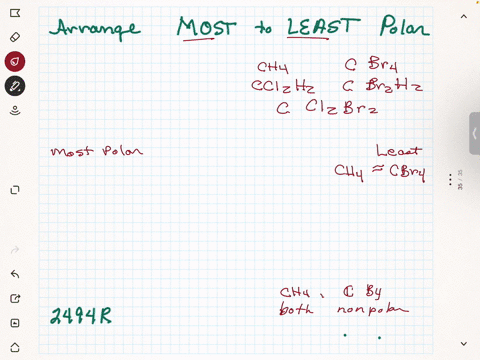 Arrange MOST to LEAST Polar
CH4 C Br4
CCl2H2 C Br2H2
C Cl2Br2
most Polar Least
CH4 ≈ CBr4
CH4, C By
both nonpolar
2494R
35 / 35